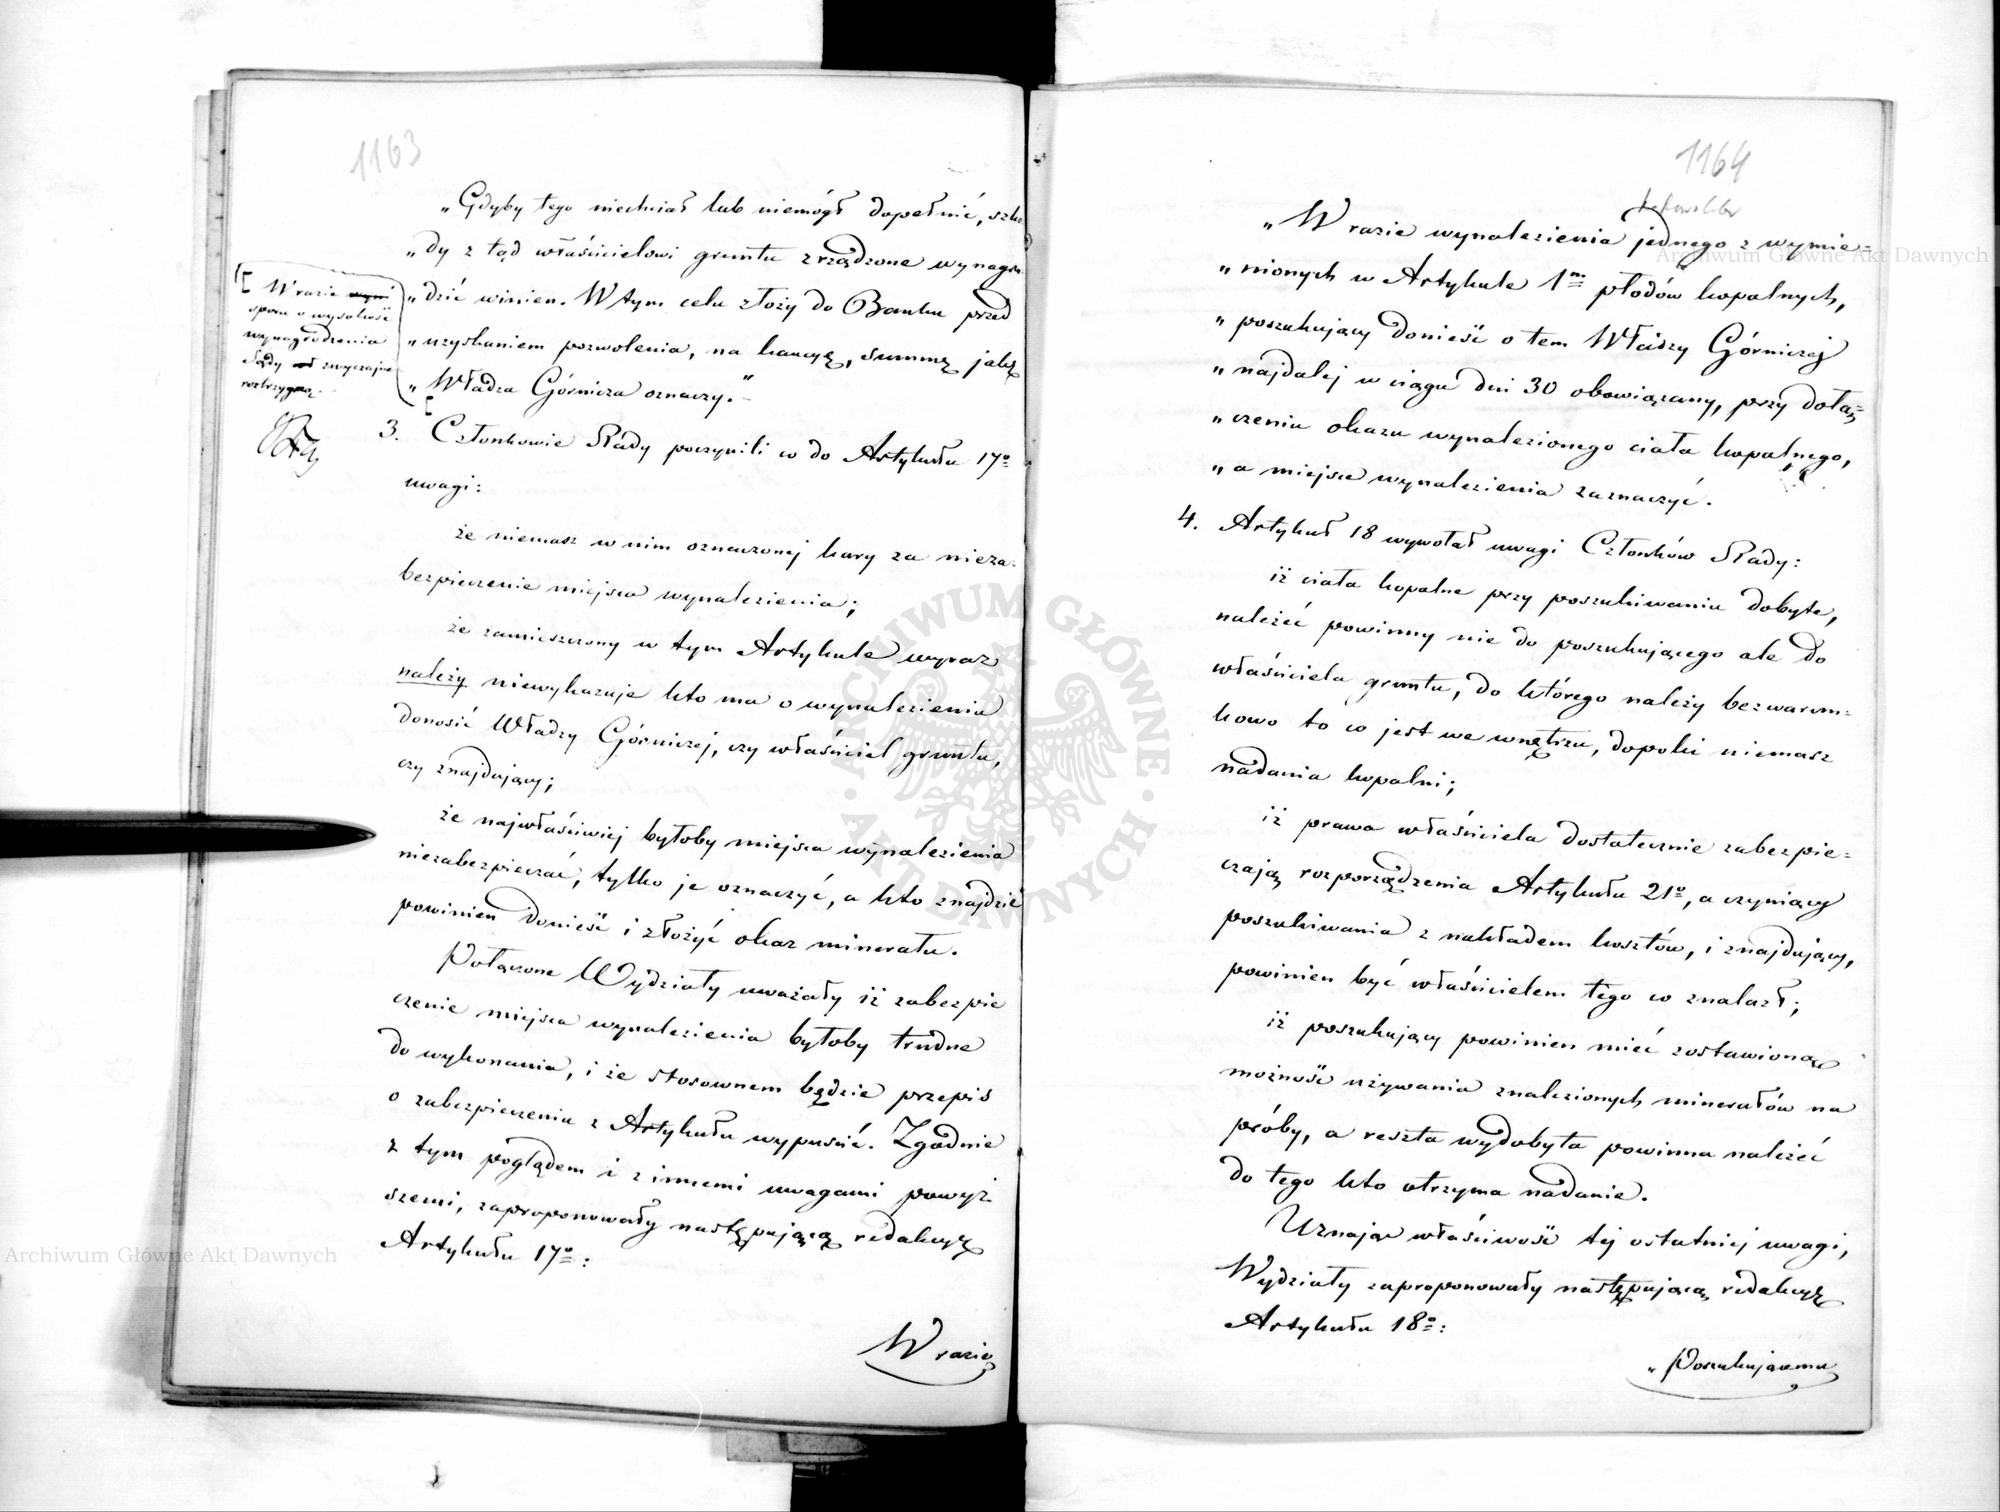 1163
„Gdyby tego niechciał lub niemógł dopełnić, szko
„dy z tąd właścicielowi gruntu zrządzone wynagro
„dzić winien. W tym celu złoży do Banku przed
„uzyskaniem pozwolenia, na kaucyę, summę jaką
„Władza Górnicza oznaczy."
[W razie
sporu o wysokość
wynagrodzenia
Sądy zwyczajne
roztrzygną.
3. Członkowie Rady poczynili co do Artykułu 17º
uwagi:
że niemasz w nim oznaczonej kary za nieza-
bezpieczenie miejsca wynalezienia;
że zamieszczony w tym Artykule wyraz
należy niewykazuje kto ma o wynalezieniu
donosić Władzy Górniczej, czy właściciel gruntu,
czy znajdujący;
że najwłaściwiej byłoby miejsca wynalezienia
niezabezpieczać, tylko je oznaczyć, a kto znajdzie
powinien donieść i złożyć okaz minerału.
Połączone Wydziały uważały iż zabezpie
czenie miejsca wynalezienia byłoby trudne
do wykonania, i że stosownem będzie przepis
o zabezpieczeniu z Artykułu wypuścić. Zgodnie
z tym poglądem i z innemi uwagami powyż
szemi, zaproponowały następującą redakcyę
Artykułu 17º:
W razie
1164
„W razie wynalezienia jednego z wymie=
„nionych w Artykule 1m płodów kopalnych,
„poszukujący donieść o tem Władzy Górniczej
„najdalej w ciągu dni 30 obowiązany, przy dołą=
„czeniu okazu wynalezionego ciała kopalnego,
„a miejsce wynalezienia zaznaczyć.
4. Artykuł 18 wywołał uwagi Członków Rady:
iż ciała kopalne przy poszukiwaniu dobyte,
należeć powinny nie do poszukującego ale do
właściciela gruntu, do którego należy bezwarun=
kowo to co jest we wnętrzu, dopóki niemasz
nadania kopalni;
iż prawa właściciela dostatecznie zabezpie=
czają rozporządzenia Artykułu 21º, a czyniący
poszukiwania z nakładem kosztów, i znajdujący,
powinien być właścicielem tego co znalazł;
iż poszukujący powinien mieć zostawioną
możność używania znalezionych minerałów na
próby, a reszta wydobyta powinna należeć
do tego kto otrzyma nadanie.
Uznając właściwość tej ostatniej uwagi,
Wydziały zaproponowały następującą redakcyę
Artykułu 18º:
„Poszukującemu
ARCHIWUM GŁÓWNE AKT DAWNYCH
Archiwum Główne Akt Dawnych
Archiwum Główne Akt Dawnych